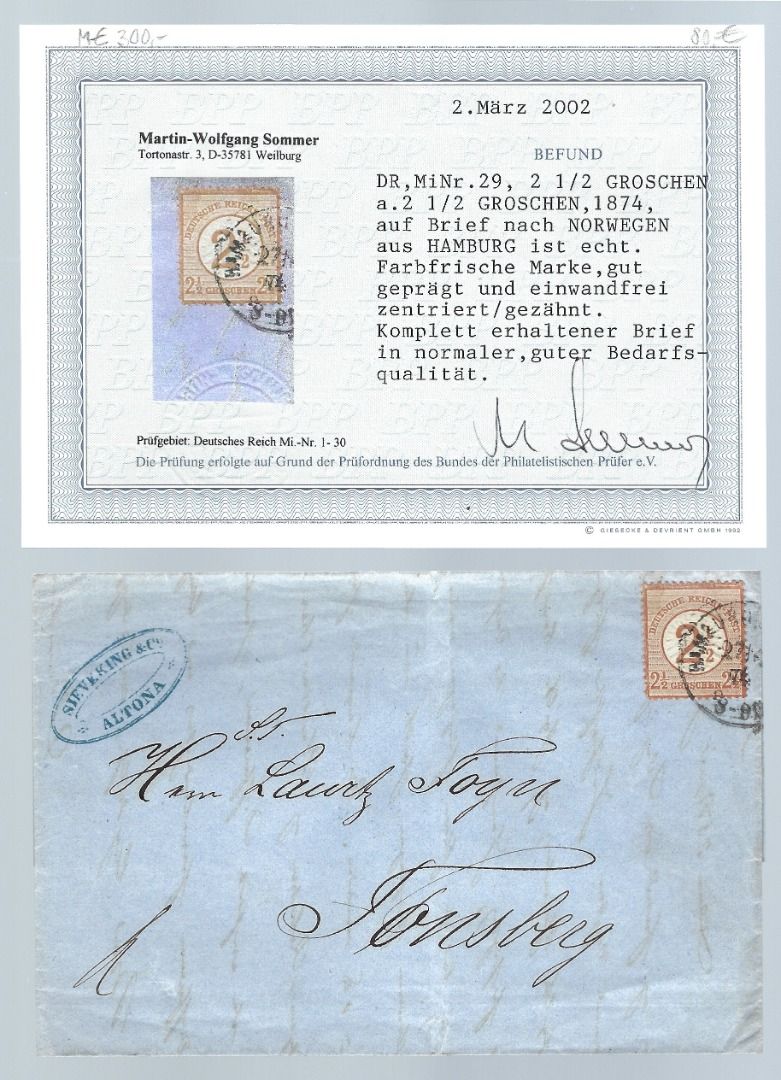 M€ 300,-
80,-€
2.März 2002
Martin-Wolfgang Sommer
Tortonastr. 3, D-35781 Weilburg
BEFUND
DR,MiNr.29, 2 1/2 GROSCHEN
a.2 1/2 GROSCHEN,1874,
auf Brief nach NORWEGEN
aus HAMBURG ist echt.
Farbfrische Marke,gut
geprägt und einwandfrei
zentriert/gezähnt.
Komplett erhaltener Brief
in normaler,guter Bedarfs-
qualität.
DEUTSCHE REICHS-POST
2½
2½ GROSCHEN 2½
Prüfgebiet: Deutsches Reich Mi.-Nr. 1- 30
Die Prüfung erfolgte auf Grund der Prüfordnung des Bundes der Philatelistischen Prüfer e.V.
© GIESECKE & DEVRIENT GMBH 1992
SIEVEKING & Co
ALTONA
DEUTSCHE REICHS-POST
2½
2½ GROSCHEN 2½
Herrn Lauritz Foyn
Tønsberg